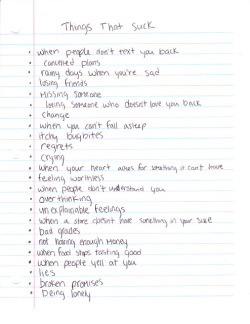 Things That Suck
• when people don't text you back
• cancelled plans
• rainy days when you're sad
• losing friends
• Missing someone
• loving someone who doesn't love you back
• change
• when you can't fall asleep
• itchy bugbites
• regrets
• crying
• when your heart aches for something it can't have
• feeling worthless
• when people don't understand you
• overthinking
• unexplainable feelings
• when a store doesn't have something in your size
• bad grades
• not having enough money
• when food stops tasting good
• when people yell at you
• lies
• broken promises
• being lonely